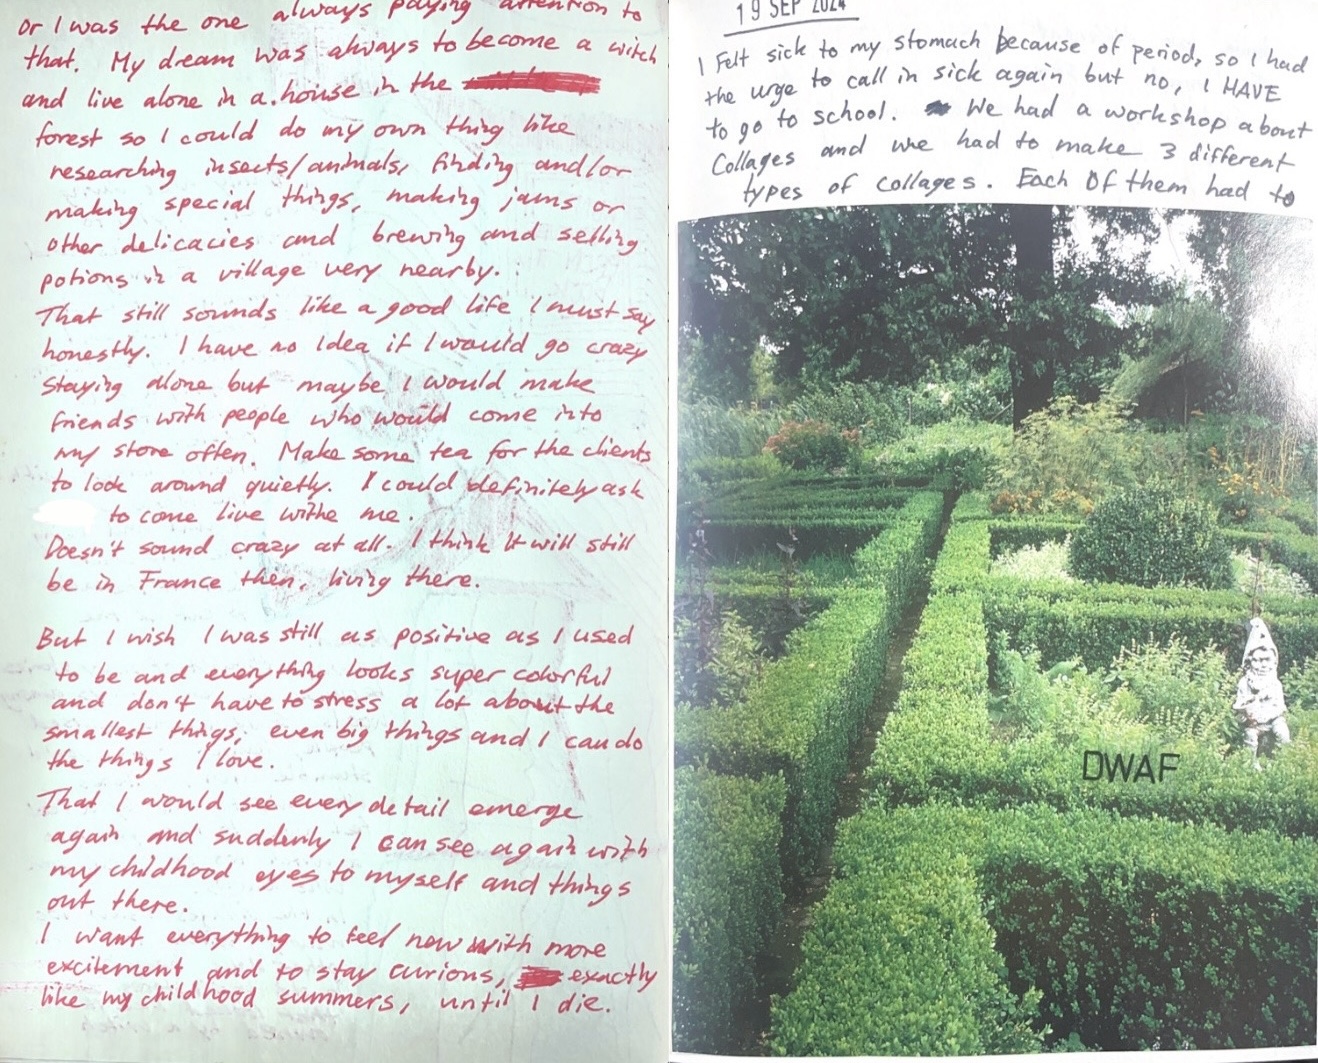 or I was the one always paying attention to
that. My dream was always to become a witch
and live alone in a house in the
forest so I could do my own thing like
researching insects/animals, finding and/or
making special things, making jams or
other delicacies and brewing and selling
potions in a village very nearby.
That still sounds like a good life I must say
honestly. I have no Idea if I would go crazy
staying alone but maybe I would make
friends with people who would come into
my store often. Make some tea for the clients
to look around quietly. I could definitely ask
to come live withe me.
Doesn't sound crazy at all. I think it will still
be in France then, living there.
But I wish I was still as positive as I used
to be and everything looks super colorful
and don't have to stress a lot about the
smallest things, even big things and I can do
the things I love.
That I would see every detail emerge
again and suddenly I can see again with
my childhood eyes to myself and things
out there.
I want everything to feel new with more
excitement and to stay curious, exactly
like my childhood summers, until I die.
19 SEP 2024
I Felt sick to my stomach because of period, so I had
the urge to call in sick again but no, I HAVE
to go to school. We had a workshop about
Collages and we had to make 3 different
types of collages. Each Of them had to
DWAF